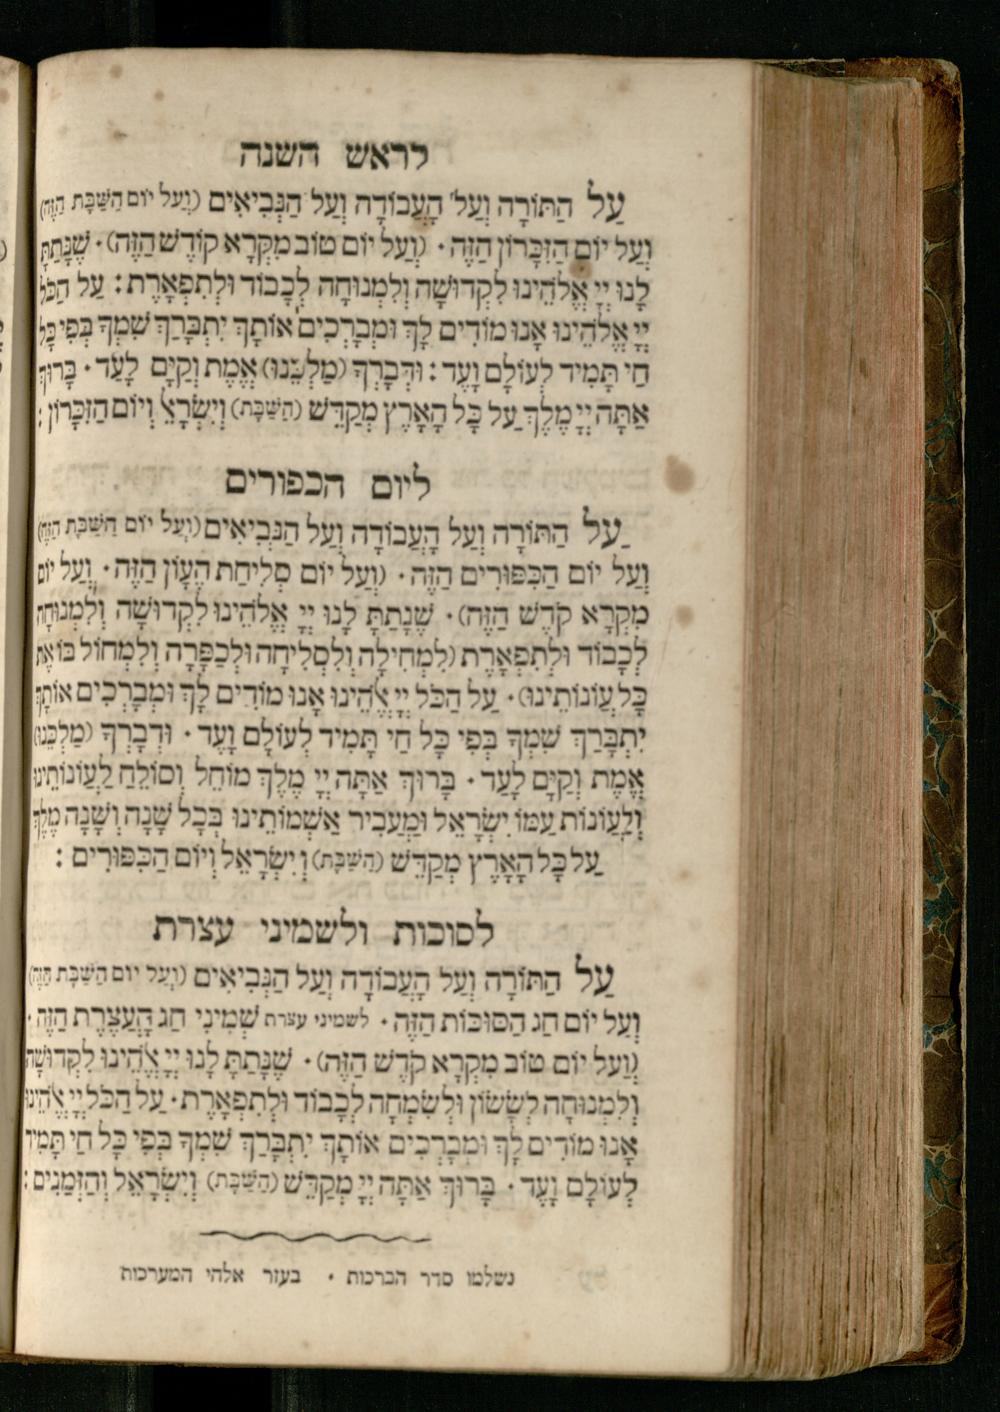 לראש השנה
עַל הַתּוֹרָה וְעַל הָעֲבוֹדָה וְעַל הַנְּבִיאִים (וְעַל יוֹם הַשַּׁבָּת הַזֶּה)
וְעַל יוֹם הַזִּכָּרוֹן הַזֶּה · (וְעַל יוֹם טוֹב מִקְרָא קוֹדֶשׁ הַזֶּה) · שֶׁנָּתַתָּ
לָנוּ יְיָ אֱלֹהֵינוּ לִקְדוּשָׁה וְלִמְנוּחָה לְכָבוֹד וּלְתִפְאָרֶת : עַל הַכֹּל
יְיָ אֱלֹהֵינוּ אָנוּ מוֹדִים לָךְ וּמְבָרְכִים אוֹתָךְ יִתְבָּרַךְ שִׁמְךָ בְּפִי כָּל
חַי תָּמִיד לְעוֹלָם וָעֶד : וּדְבָרְךָ (מַלְכֵּנוּ) אֱמֶת וְקַיָּם לָעַד · בָּרוּךְ
אַתָּה יְיָ מֶלֶךְ עַל כָּל הָאָרֶץ מְקַדֵּשׁ (הַשַּׁבָּת) וְיִשְׂרָאֵל וְיוֹם הַזִּכָּרוֹן :
ליום הכפורים
עַל הַתּוֹרָה וְעַל הָעֲבוֹדָה וְעַל הַנְּבִיאִים (וְעַל יוֹם הַשַּׁבָּת הַזֶּה)
וְעַל יוֹם הַכִּפּוּרִים הַזֶּה · (וְעַל יוֹם סְלִיחַת הֶעָוֹן הַזֶּה · וְעַל יוֹם
מִקְרָא קֹדֶשׁ הַזֶּה) · שֶׁנָּתַתָּ לָנוּ יְיָ אֱלֹהֵינוּ לִקְדוּשָׁה וְלִמְנוּחָה
לְכָבוֹד וּלְתִפְאָרֶת (לִמְחִילָה וְלִסְלִיחָה וּלְכַפָּרָה וְלִמְחוֹל בּוֹ אֶת
כָּל עֲוֹנוֹתֵינוּ) · עַל הַכֹּל יְיָ אֱלֹהֵינוּ אָנוּ מוֹדִים לָךְ וּמְבָרְכִים אוֹתָךְ
יִתְבָּרַךְ שִׁמְךָ בְּפִי כָּל חַי תָּמִיד לְעוֹלָם וָעֶד · וּדְבָרְךָ (מַלְכֵּנוּ)
אֱמֶת וְקַיָּם לָעַד · בָּרוּךְ אַתָּה יְיָ מֶלֶךְ מוֹחֵל וְסוֹלֵחַ לַעֲוֹנוֹתֵינוּ
וְלַעֲוֹנוֹת עַמּוֹ יִשְׂרָאֵל וּמַעֲבִיר אַשְׁמוֹתֵינוּ בְּכָל שָׁנָה וְשָׁנָה מֶלֶךְ
עַל כָּל הָאָרֶץ מְקַדֵּשׁ (הַשַּׁבָּת) וְיִשְׂרָאֵל וְיוֹם הַכִּפּוּרִים :
לסוכות ולשמיני עצרת
עַל הַתּוֹרָה וְעַל הָעֲבוֹדָה וְעַל הַנְּבִיאִים (וְעַל יוֹם הַשַּׁבָּת הַזֶּה)
וְעַל יוֹם חַג הַסּוּכּוֹת הַזֶּה · לשמיני עצרת שְׁמִינִי חַג הָעֲצֶרֶת הַזֶּה ·
(וְעַל יוֹם טוֹב מִקְרָא קֹדֶשׁ הַזֶּה) · שֶׁנָּתַתָּ לָנוּ יְיָ אֱלֹהֵינוּ לִקְדוּשָׁה
וְלִמְנוּחָה לְשָׂשׂוֹן וּלְשִׂמְחָה לְכָבוֹד וּלְתִפְאָרֶת · עַל הַכֹּל יְיָ אֱלֹהֵינוּ
אָנוּ מוֹדִים לָךְ וּמְבָרְכִים אוֹתָךְ יִתְבָּרַךְ שִׁמְךָ בְּפִי כָּל חַי תָּמִיד
לְעוֹלָם וָעֶד · בָּרוּךְ אַתָּה יְיָ מְקַדֵּשׁ (הַשַּׁבָּת) וְיִשְׂרָאֵל וְהַזְּמַנִּים :
נשלמו סדר הברכות · בעזר אלהי המערכות